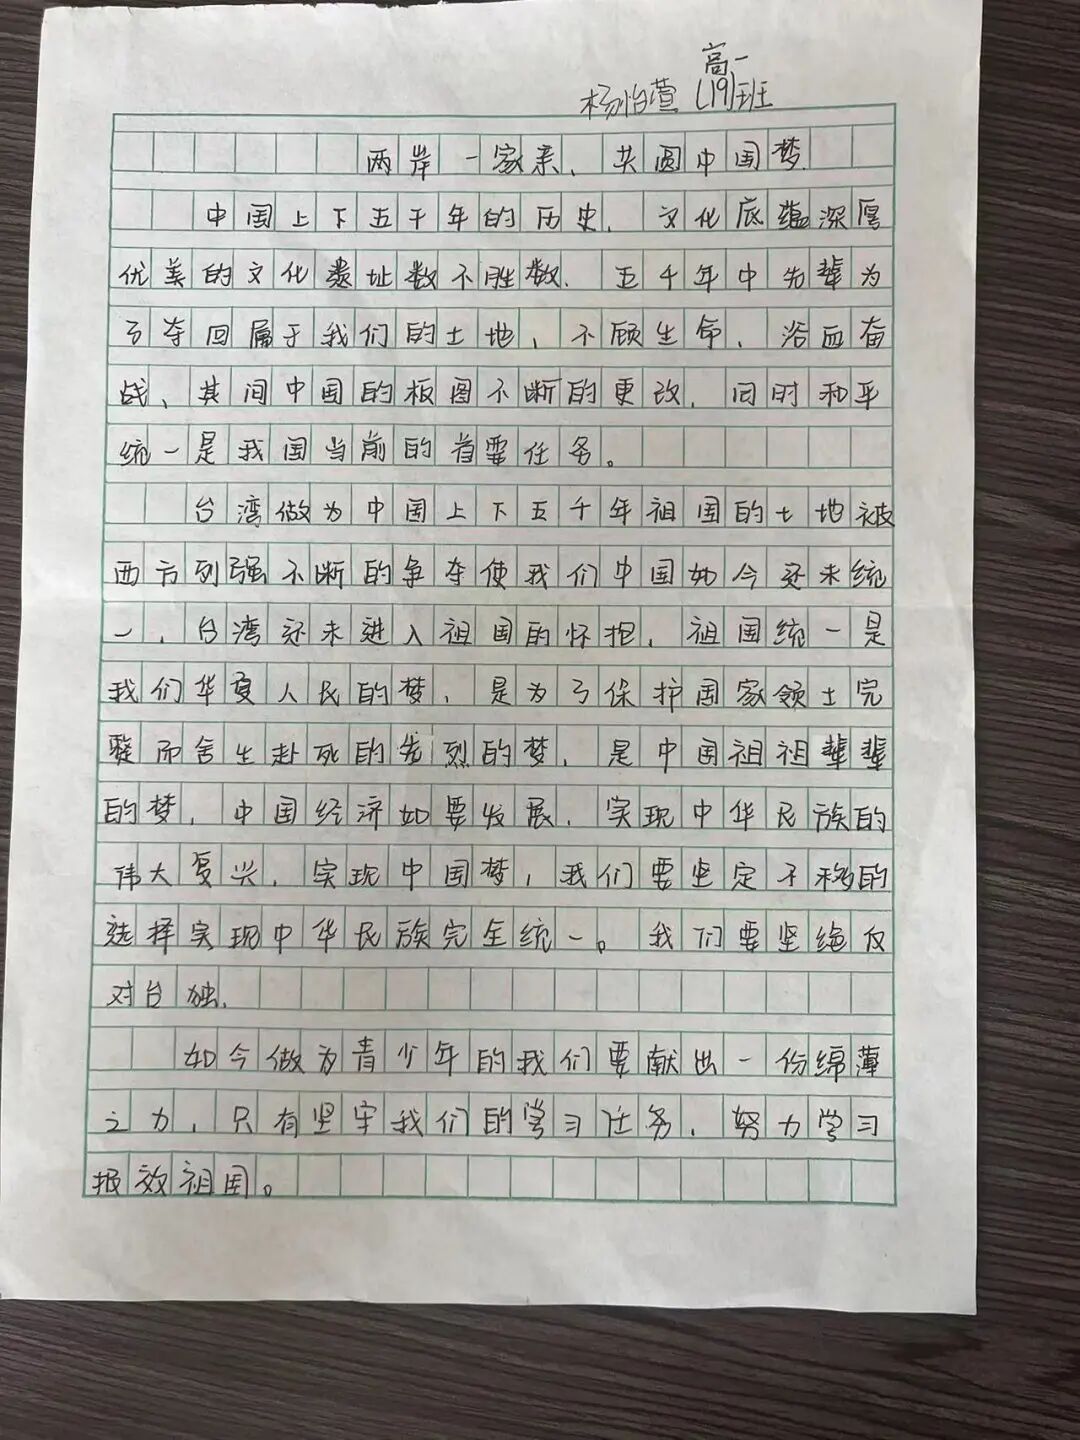 高一
杨怡萱 (19)班
两岸一家亲、共圆中国梦.
中国上下五千年的历史,文化底蕴深厚
优美的文化遗址数不胜数.五千年中先辈为
了夺回属于我们的土地,不顾生命、浴血奋
战、其间中国的板图不断的更改.同时和平
统一是我国当前的首要任务。
台湾做为中国上下五千年祖国的土地被
西方列强不断的争夺使我们中国如今还未统
一,台湾还未进入祖国的怀抱,祖国统一是
我们华夏人民的梦,是为了保护国家领土完
整而舍生赴死的先烈的梦,是中国祖祖辈辈
的梦,中国经济如要发展.实现中华民族的
伟大复兴,实现中国梦,我们要坚定不移的
选择实现中华民族完全统一。我们要坚绝反
对台独.
如今做为青少年的我们要献出一份绵薄
之力,只有坚牢我们的学习任务,努力学习
报效祖国。